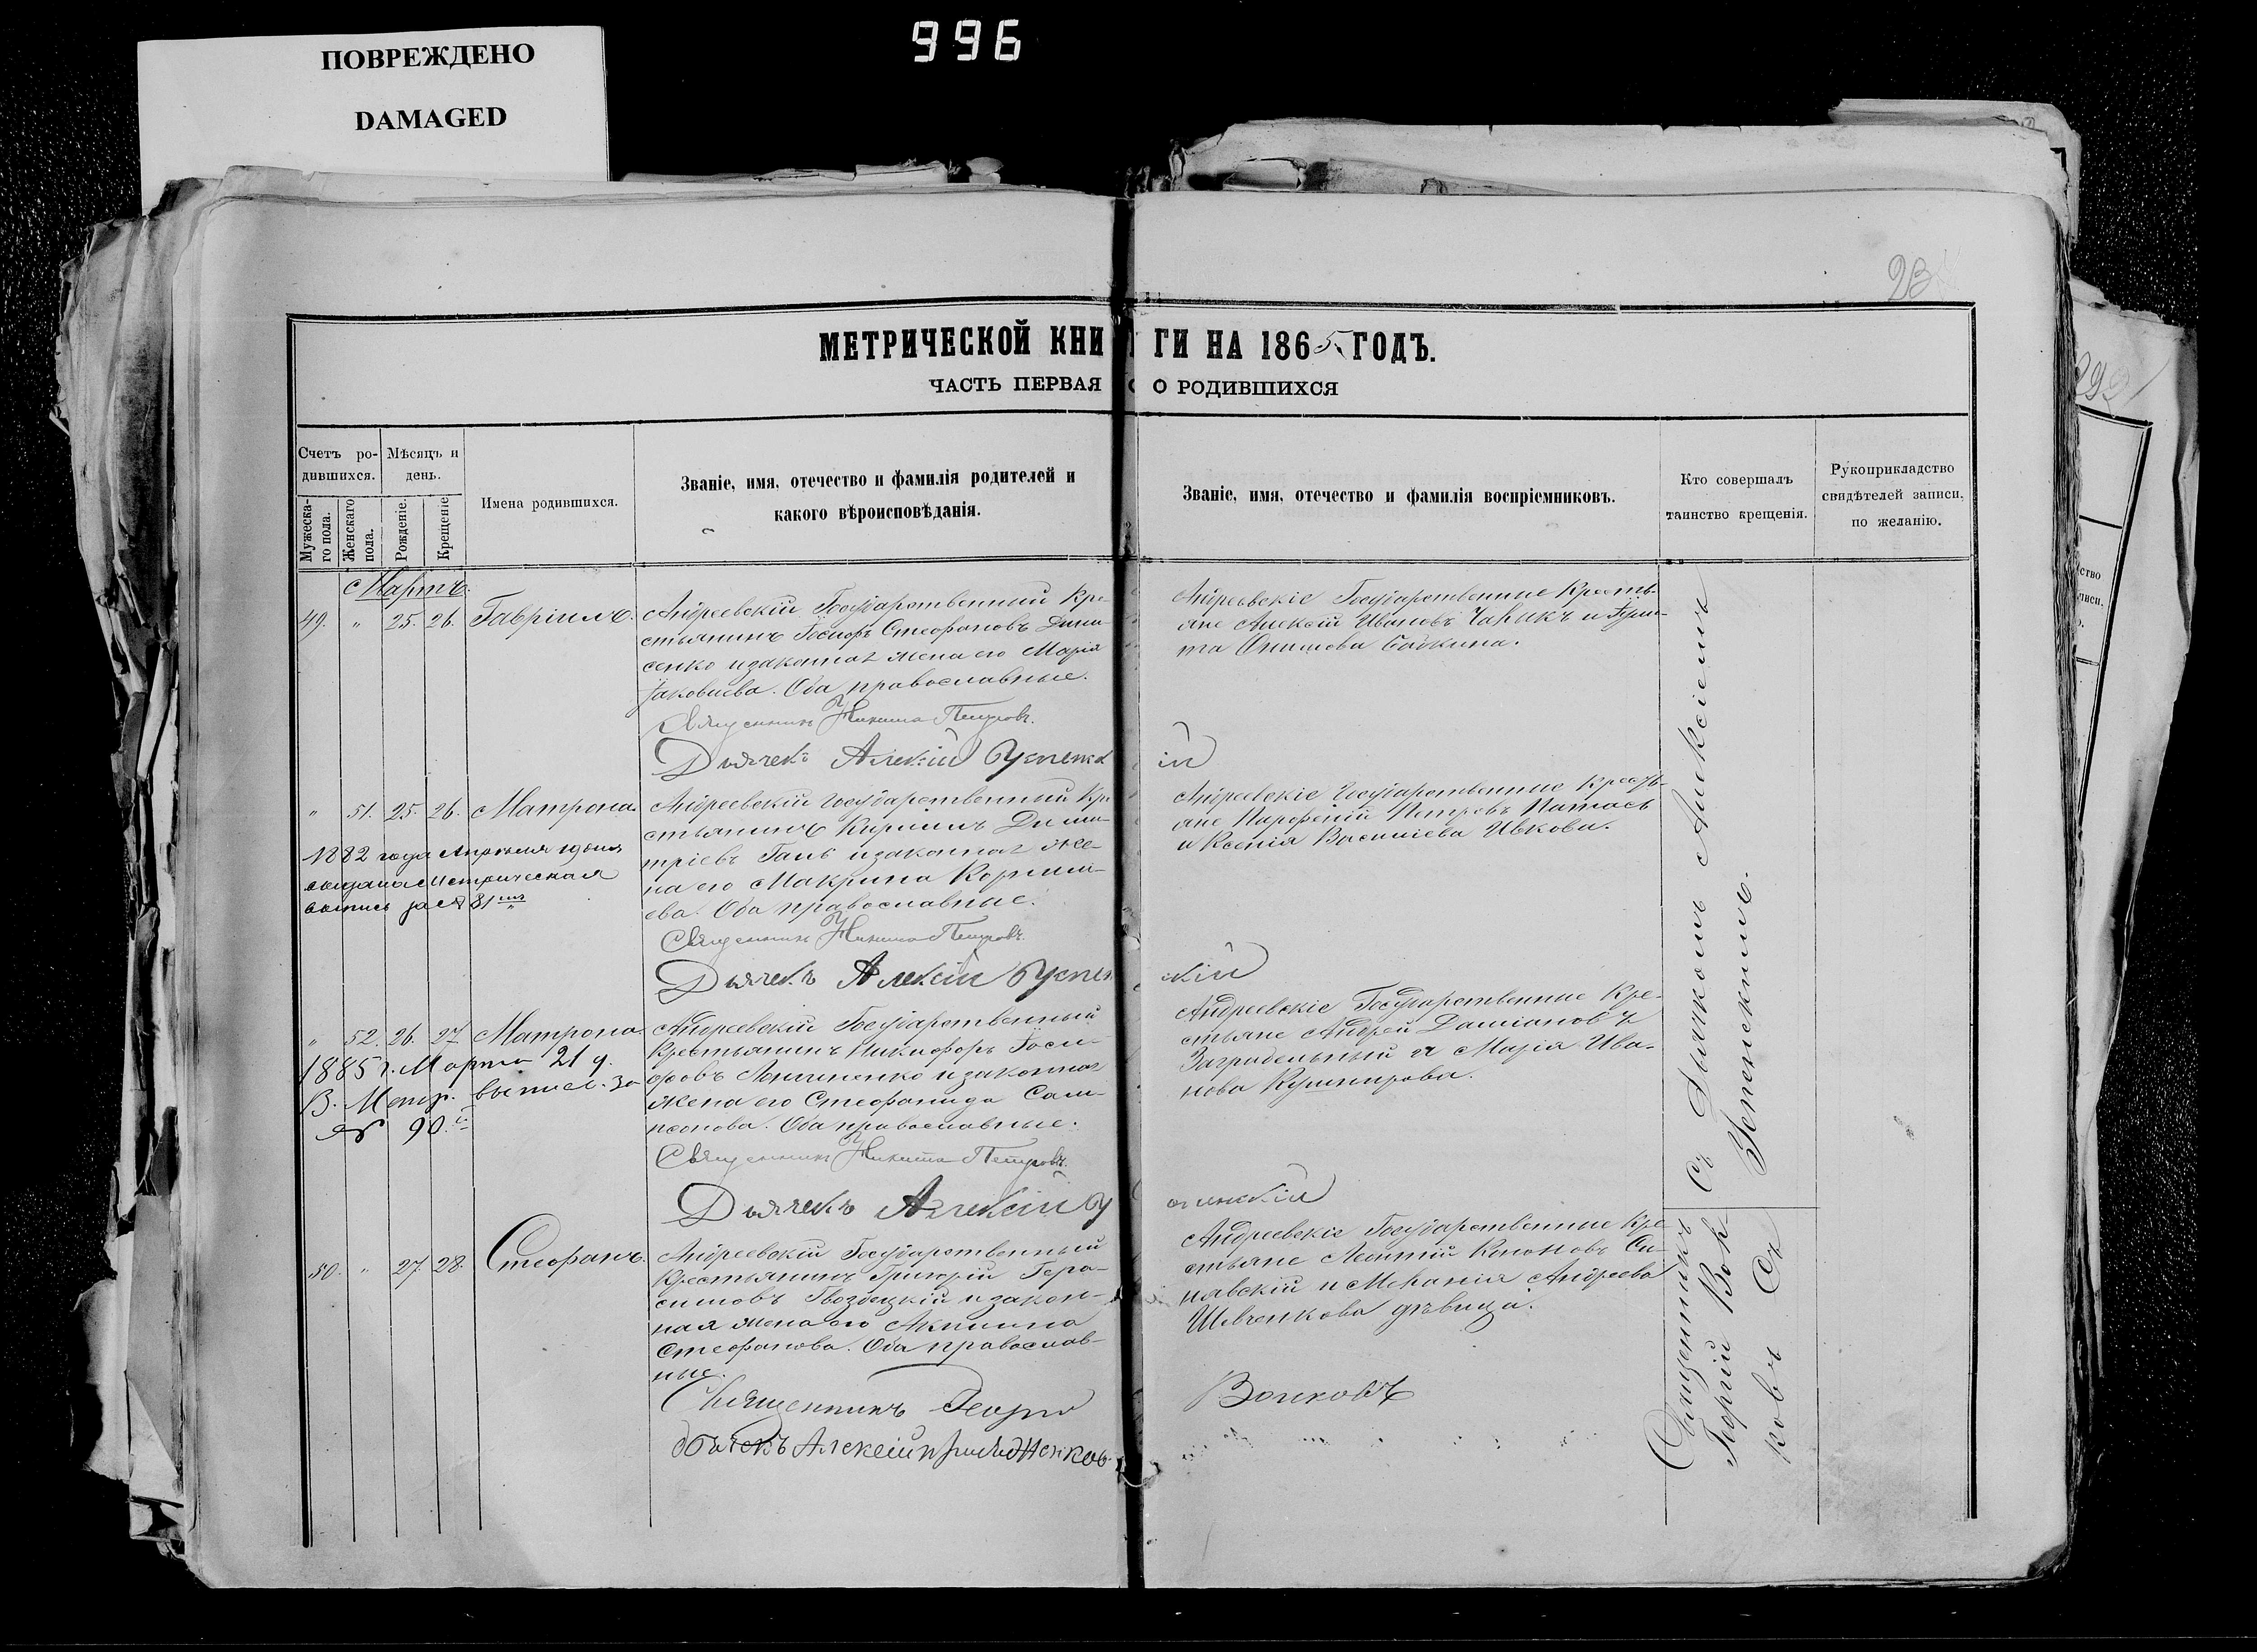 996
ПОВРЕЖДЕНО
DAMAGED
МЕТРИЧЕСКОЙ КНИГИ НА 1865 ГОДЪ.
ЧАСТЬ ПЕРВАЯ О РОДИВШИХСЯ
Счетъ ро-
дившихся.
Мужеска-
го пола.
Женскаго
пола.
Мѣсяцъ и
день.
Рожденіе.
Крещеніе
Имена родившихся.
Званіе, имя, отечество и фамилія родителей и
какого вѣроисповѣданія.
Званіе, имя, отечество и фамилія воспріемниковъ.
Кто совершалъ
таинство крещенія.
Рукоприкладство
свидѣтелей записи,
по желанію.
Мартъ.
49. " 25. 26. Гавріилъ.
Андреевскій Государственный Кре-
стьянинъ Іосифъ Стефановъ
сенко и законная жена его Марія
Іаковлева. Оба православные.
Священникъ Никита Петровъ.
Дьячекъ Алексій Успенскій
Андреевскіе Государственные Кресть-
яне Алексій Ивановъ и
та
" 51. 25. 26. Матрона.
1882 года Апрѣля 19 дня
выдана Метрическая
выпись за № 81
Андреевскій Государственный Кре
стьянинъ Кириллъ Дими-
тріевъ Гань и законная же-
на его Макрина Корнили-
ева. Оба православные.
Священникъ Никита Петровъ.
Дьячекъ Алексій Успенскій
Андреевскіе Государственные Кресть-
яне Парфеній Петровъ
и Ксенія Василіева Ивкова.
" 52. 26. 27. Матрона.
1885 г. Марта 21 д.
В. Метр. выпис. за
№ 90.
Андреевскій Государственный
Крестьянинъ Никифоръ
и законная
жена его Стефанида Сам-
псонова. Оба православные.
Священникъ Никита Петровъ.
Дьячекъ Алексій Успенскій
Андреевскіе Государственные Кре-
стьяне Андрей Даміановъ
Заградельный и Марія Ива-
нова Кушнирова.
50. " 27. 28. Стефанъ.
Андреевскій Государственный
Крестьянинъ Григорій Гера-
симовъ Гвоздецкій и закон-
ная жена его Акилина
Стефанова. Оба православ-
ные.
Священникъ Георгій Волковъ
Алексій
Андреевскіе Государственные Кре
стьяне Леонтій Кононовъ Си-
нявскій и Меланія Андреева
Шевченкова дѣвица.
Съ Дьячкомъ Алексіемъ
Успенскимъ.
Священникъ
Георгій Вол
ковъ Съ